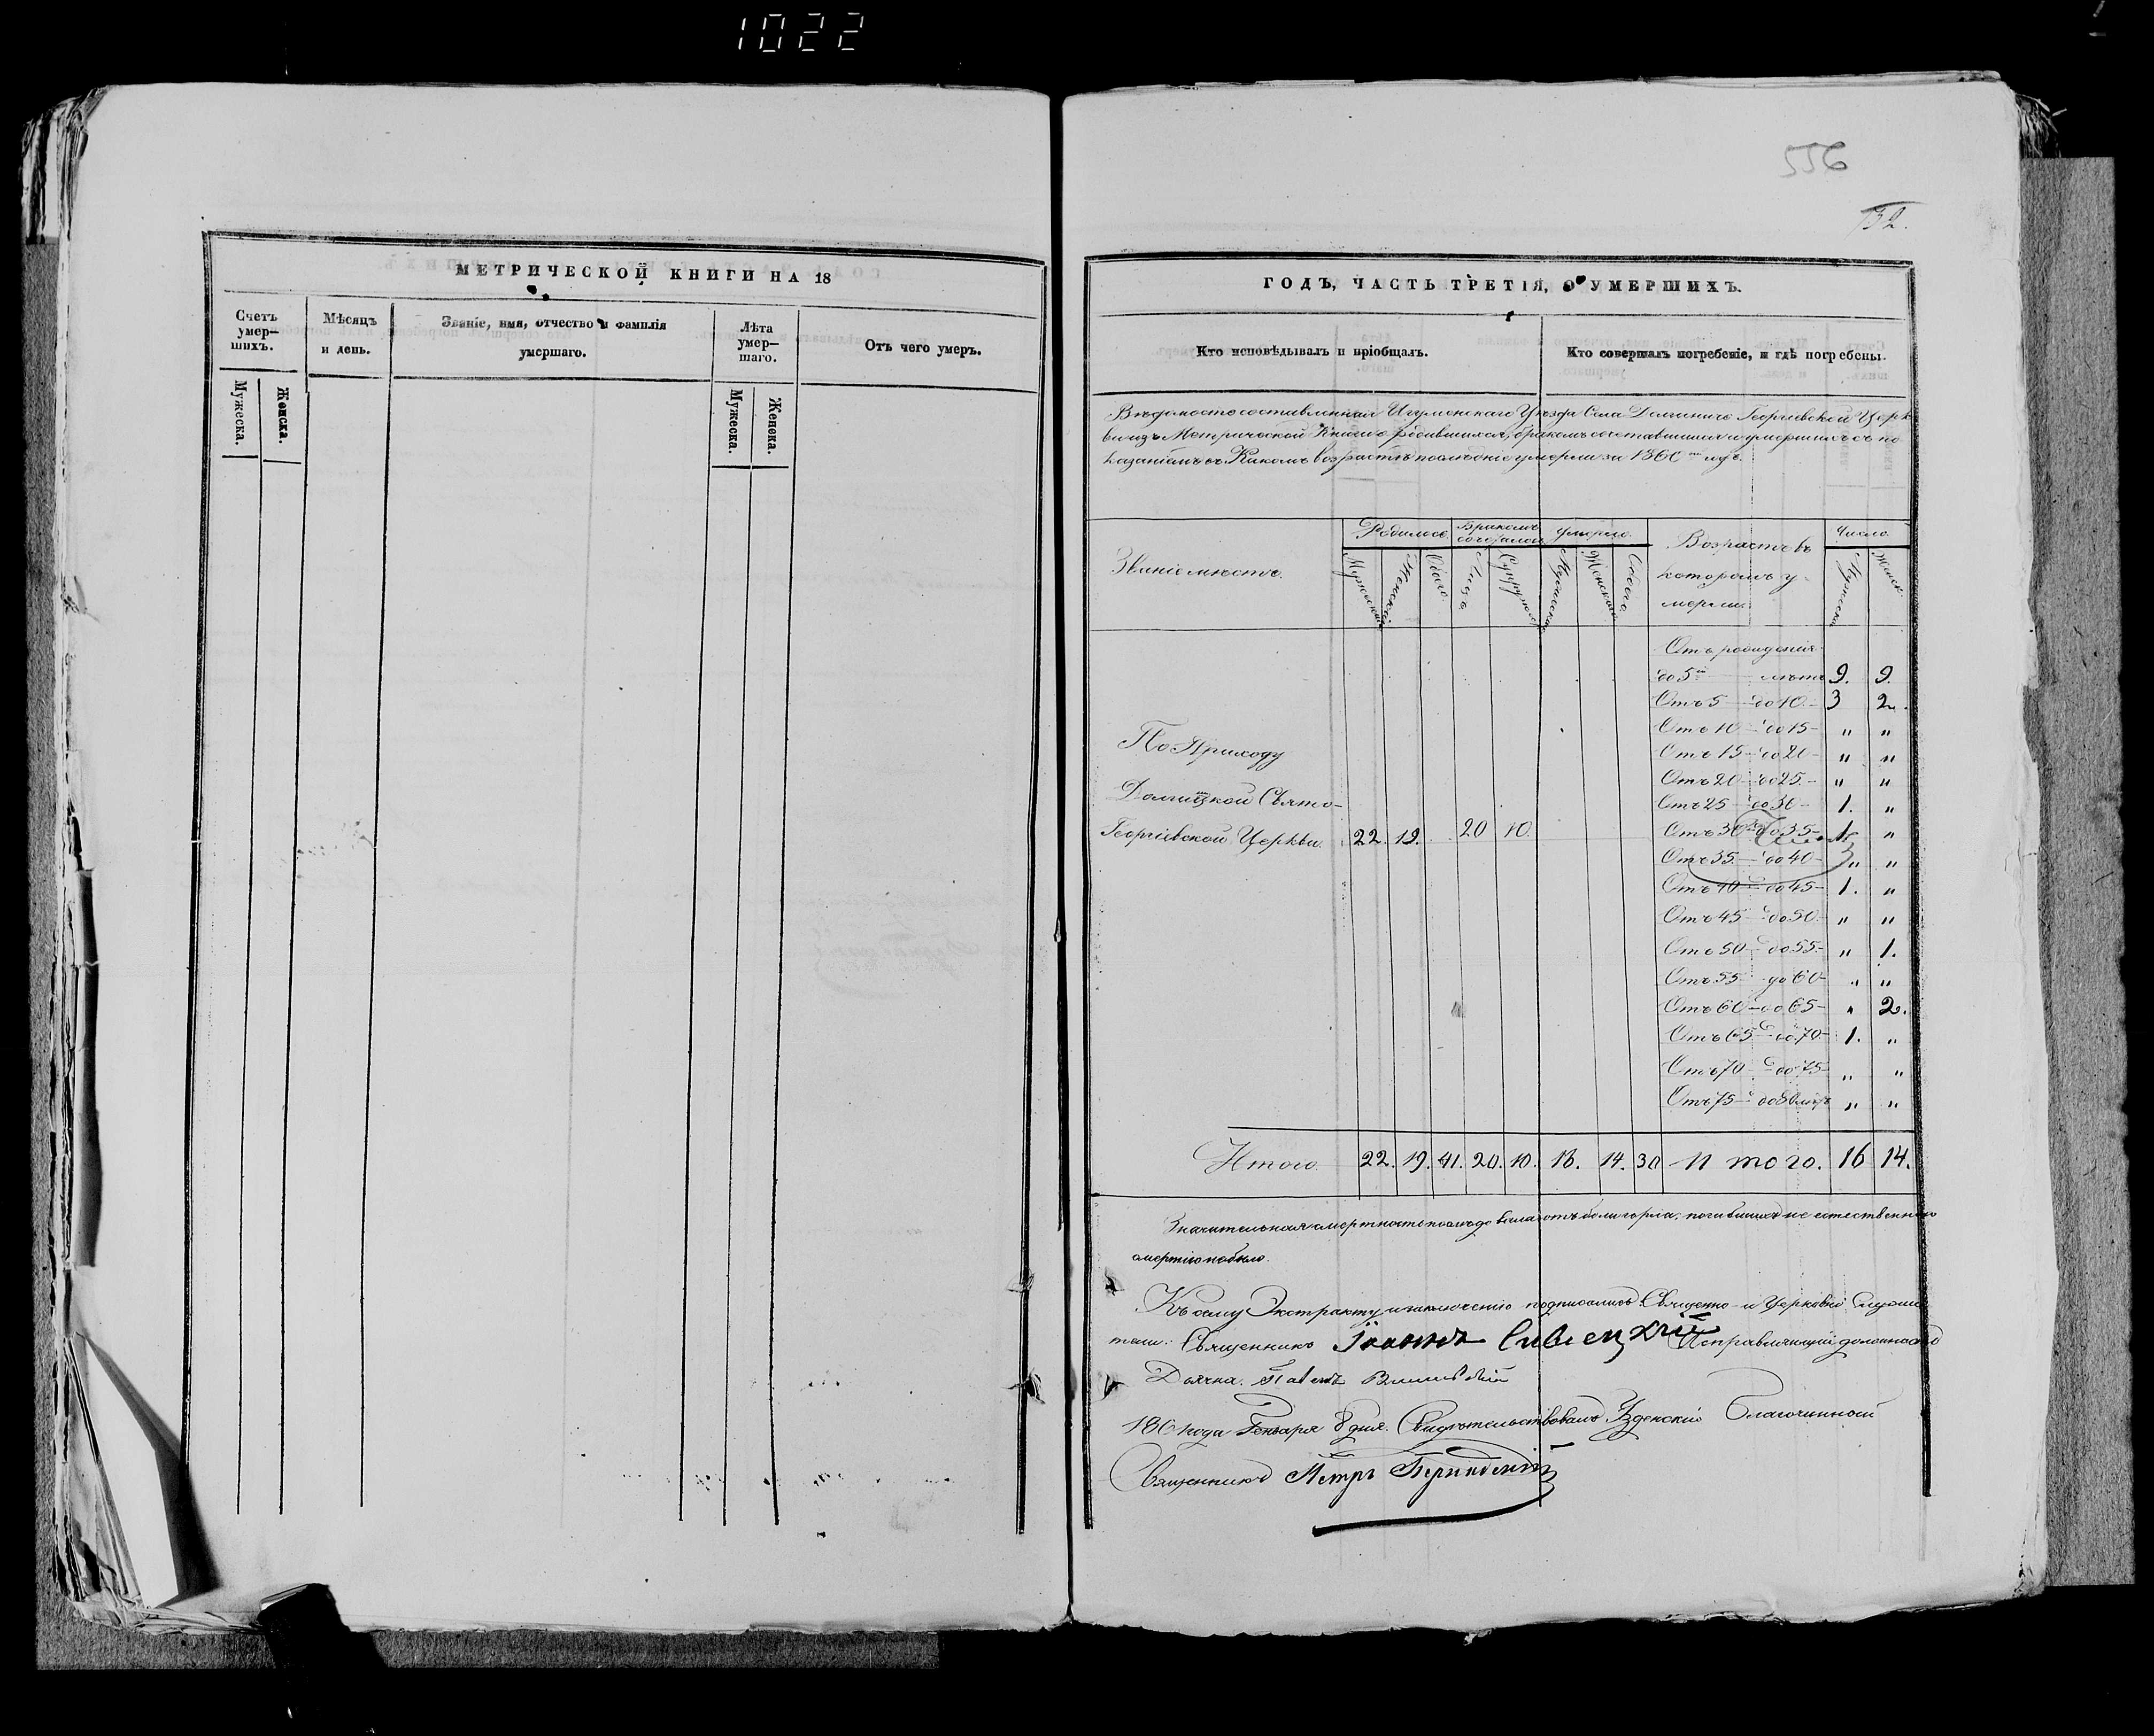 1022
556
132.
МЕТРИЧЕСКОЙ КНИГИ НА 18
Счетъ умер-
шихъ.
Мѣсяцъ
и день.
Званіе, имя, отчество и фамилія
умершаго.
Лѣта
умер-
шаго.
Отъ чего умеръ.
Мужеска.
Женска.
Мужеска.
Женска.
ГОДЪ, ЧАСТЬ ТРЕТІЯ, О УМЕРШИХЪ.
Кто исповѣдывалъ и пріобщалъ.
Кто совершалъ погребеніе, и гдѣ погребены.
Вѣдомость составленная Игуменскаго Уѣзда Села Долгиничъ Георгіевской Церк
ви изъ Метрической Книги о родившихся, бракомъ сочетавшихся и умершихъ съ по
казаніемъ въ Какомъ возрастѣ послѣдніе умерли за 1860 годъ.
Званіе мѣстъ.
Родилось
Бракомъ
сочеталось
Умерло.
Возрастъ въ
которомъ у-
мерли
Число.
Мужескаго
Женскаго
Обоего.
Лицъ
Супружествъ
Мужескаго
Женскаго
Обоего
Мужеска
Женск.
Отъ рожденія
до 5 лѣтъ 9. 9.
Отъ 5 до 10 3 2.
Отъ 10 до 15 " "
Отъ 15 до 20 " "
Отъ 20 до 25 " "
Отъ 25 до 30 1. "
Отъ 30 до 35 "
Отъ 35 до 40 " "
Отъ 40 до 45 1. "
Отъ 45 до 50 " "
Отъ 50 до 55 " 1.
Отъ 55 до 60 " "
Отъ 60 до 65 " 2.
Отъ 65 до 70 1. "
Отъ 70 до 75 " "
Отъ 75 до " "
По Приходу
Свято-
Георгіевской Церкви. 22. 19. 20 10.
Итого. 22. 19. 41. 20. 10. 14. 30 Итого. 16 14.
Значительная смертность была отъ боли горла, погибшихъ не естественною
смертію не было.
Къ сему Экстракту и заключенію подписались Священно- и Церковно Служи
тели: Священникъ Іоаннъ Исправляющій должность
Дьячка. Павелъ
1861 года Генваря 8 дня. Свидѣтельствовалъ Узденскій Благочинный
Священникъ Петръ